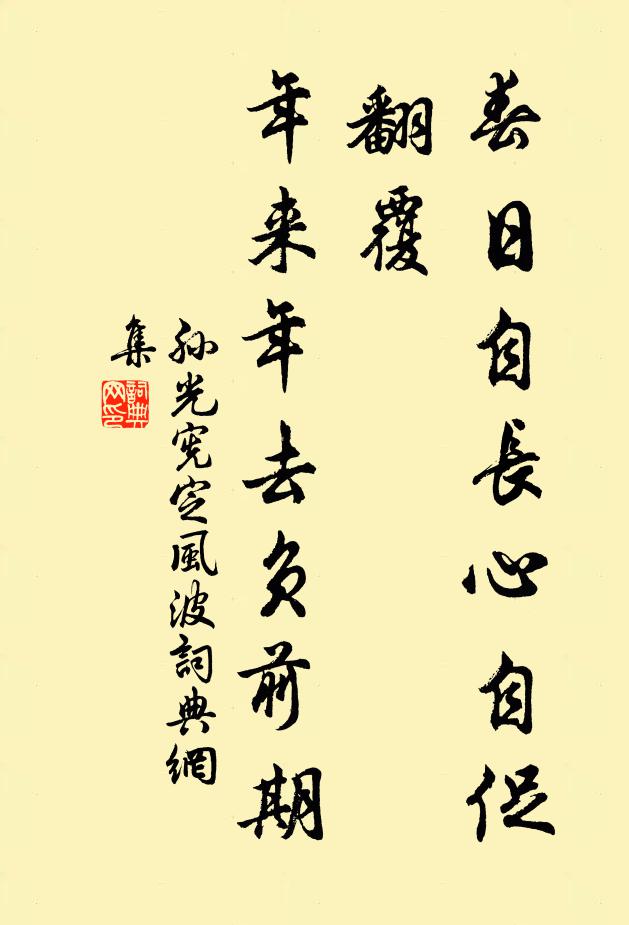 春日自長心自促
翻覆
年来年去负前期
孙光宪定風波詞典網
集
詞典
网印